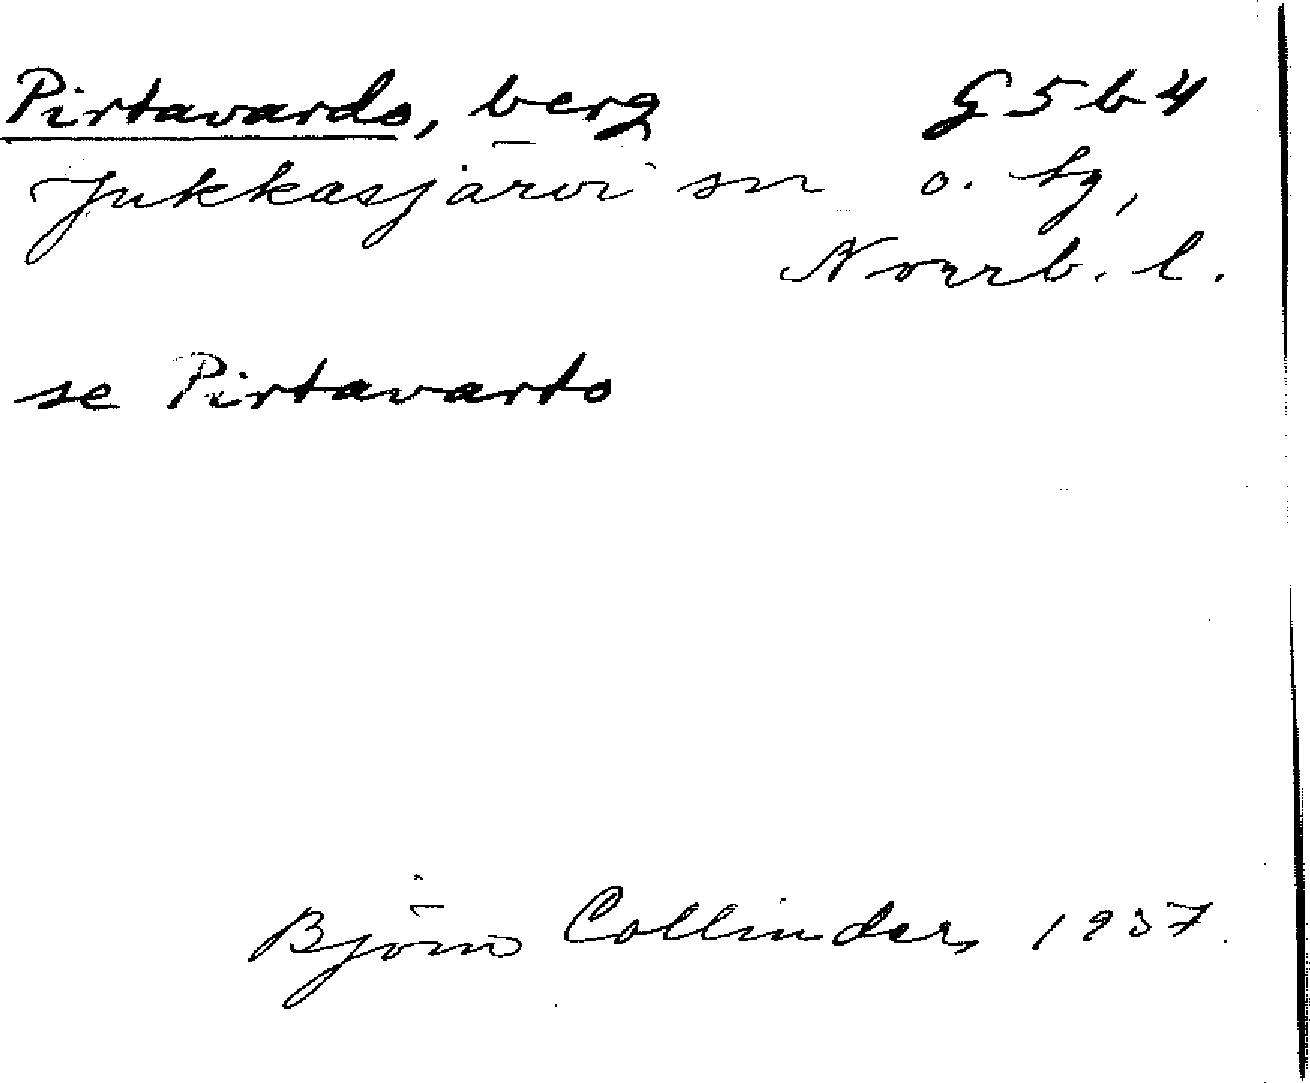 Pirtavardo, berg G5b4
Jukkasjärvi sn o. tg,
Norrb. l.
se Pirtavarto
Björn Collinder, 1937.